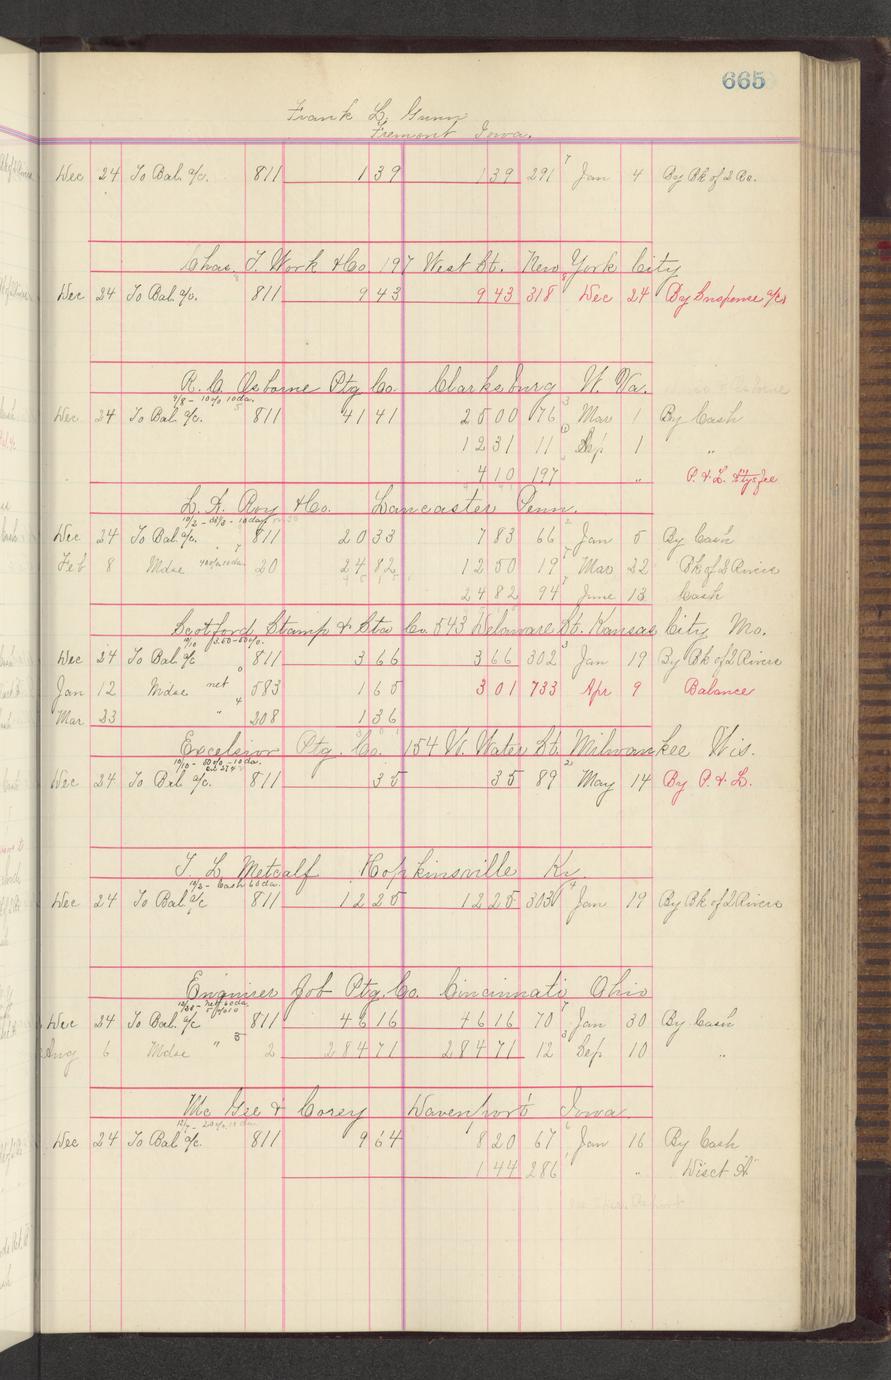 665
Frank L. Gunn
Fremont Iowa.
Dec 24 To Bal. a/c. 811 1 39 1 39 291 7 Jan 4 By Bk of 2 Rs.
Chas. T. Work & Co. 197 West St. New York City
Dec 24 To Bal. a/c. 811 9 43 9 43 318 8 Dec 24 By Suspense a/c
R. C. Osborne Ptg Co. Clarksburg W. Va.
9/8 - 10% 10 da.
Dec 24 To Bal. a/c. 811 41 41 25 00 76 3 Mar 1 By Cash
12 31 11 Sep 1 "
4 10 197 " P. & L.
L. K. Roy & Co. Lancaster Penn.
Dec 24 To Bal. a/c. 811 20 33 7 83 66 2 Jan 5 By Cash
Feb 8 Mdse 7 20 24 82 12 50 19 7 Mar 22 Bk of 2 Rivers
24 82 94 7 June 13 Cash
Scotford Stamp & Sta Co. 543 Delaware St. Kansas City Mo.
Dec 24 To Bal a/c 811 3 66 3 66 302 3 Jan 19 By Bk of 2 Rivers
Jan 12 Mdse net 6 583 1 65 3 01 733 Apr 9 Balance
Mar 23 " 4 208 1 36
Excelsior Ptg. Co. 154 W. Water St. Milwaukee Wis.
10/10 - 50% - 10 da.
Dec 24 To Bal a/c. 811 35 35 89 2 May 14 By P. & L.
T. L. Metcalf Hopkinsville Ky.
10/2 - Cash 60 da.
Dec 24 To Bal a/c 811 12 25 12 25 303 4 Jan 19 By Bk of 2 Rivers
Enquirer Job Ptg. Co. Cincinnati Ohio
Dec 24 To Bal. a/c 811 46 16 46 16 70 7 Jan 30 By Cash
Aug 6 Mdse " 8 2 284 71 284 71 12 3 Sep 10 "
Mc Gee & Corey Davenport Iowa
Dec 24 To Bal a/c. 811 9 64 8 20 67 6 Jan 16 By Cash
1 44 286 1 " Disct "A"